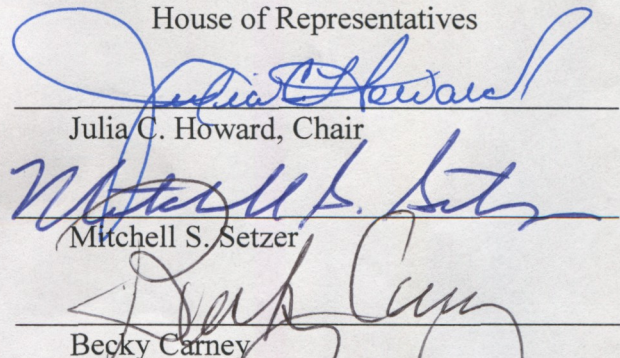 House of Representatives
Julia C Howard
Julia C. Howard, Chair
Mitchell S. Setzer
Mitchell S. Setzer
Becky Carney
Becky Carney